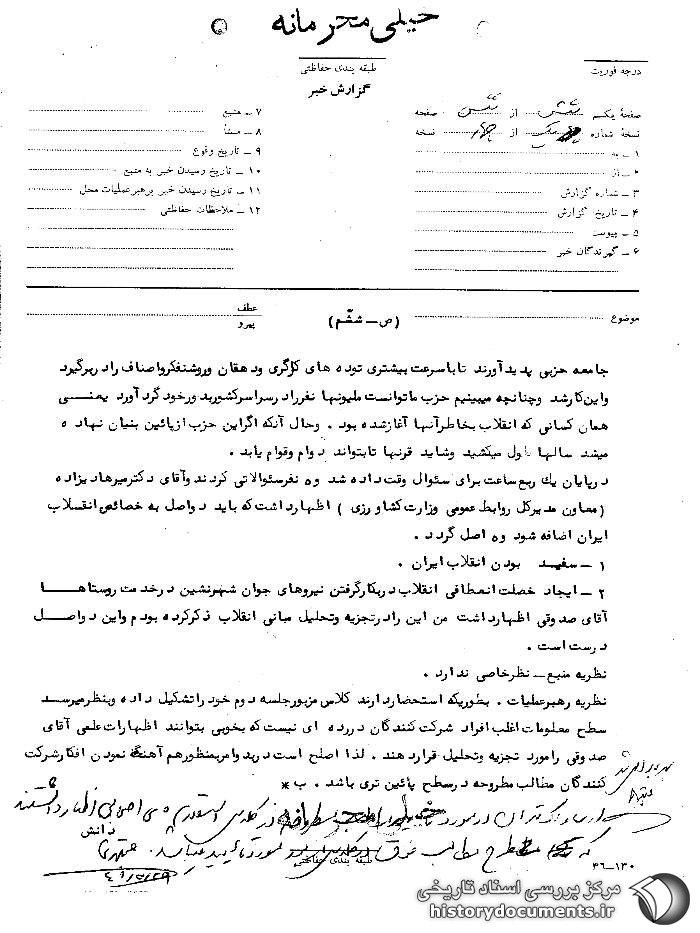 خیلی محرمانه
طبقه بندی حفاظتی
درجه فوریت
گزارش خبر
صفحهٔ یکم شش از شش صفحه
نسخهٔ شماره یک از چهار نسخه
۱ ـ به
۲ ـ از
۳ ـ شماره گزارش
۴ ـ تاریخ گزارش
۵ ـ پیوست
۶ ـ گیرندگان خبر
۷ ـ منبع
۸ ـ منشأ
۹ ـ تاریخ وقوع
۱۰ ـ تاریخ رسیدن خبر به منبع
۱۱ ـ تاریخ رسیدن خبر برهبر عملیات محل
۱۲ ـ ملاحظات حفاظتی
موضوع
(ص ـ ششم)
عطف
پیرو
جامعه حزبی پدید آورند تا با سرعت بیشتری توده های کارگری و دهقان و روشنفکر و اصناف را در برگیرد
و این کار شد و چنانچه میبینیم حزب ما توانست ملیونها نفر را در سراسر کشور بدور خود گرد آورد یعنی
همان کسانی که انقلاب بخاطر آنها آغاز شده بود . و حال آنکه اگر این حزب از پائین بنیان نهاده
میشد سالها طول میکشید و شاید قرنها تا بتواند دوام و قوام یابد .
در پایان یک ربع ساعت برای سئوال وقت داده شد و ه نفر سئوالاتی کردند و آقای دکتر میرهادیزاده
(معاون مدیرکل روابط عمومی وزارت کشاورزی) اظهار داشت که باید دو اصل به خصائص انقلاب
ایران اضافه شود و ه اصل گردد .
۱ ـ سفید بودن انقلاب ایران .
۲ ـ ایجاد خصلت انعطافی انقلاب در بکار گرفتن نیروهای جوان شهرنشین در خدمت روستاها
آقای صدوقی اظهار داشت من این را در تجزیه و تحلیل مبانی انقلاب ذکر کرده بودم و این دو اصل
درست است .
نظریه منبع ـ نظر خاصی ندارد .
نظریه رهبر عملیات . بطوریکه استحضار دارند کلاس مزبور جلسه دوم خود را تشکیل داده و بنظر میرسد
سطح معلومات اغلب افراد شرکت کنندگان در رده ای نیست که بخوبی بتوانند اظهارات علمی آقای
صدوقی را مورد تجزیه و تحلیل قرار دهند . لذا اصلح است در بدو امر بمنظور هم آهنگ نمودن افکار شرکت
کنندگان مطالب مطروحه در سطح پائین تری باشد . ب *
طبقه بندی حفاظتی
۳۶-۱۳۰
مرکز بررسی اسناد تاریخی
historydocuments.ir